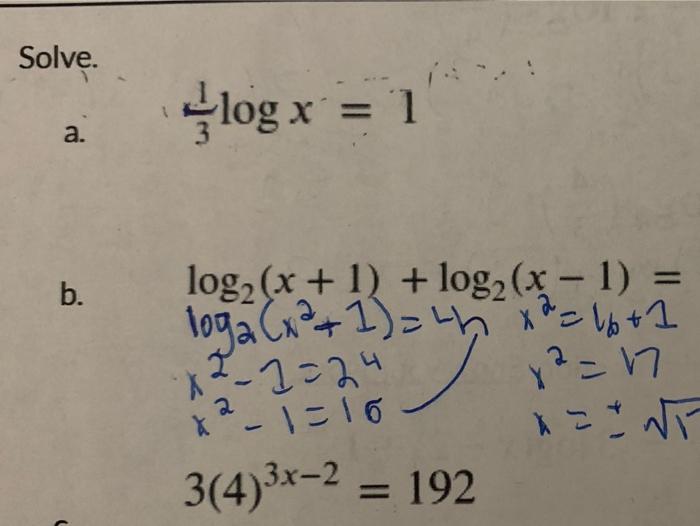 Solve.
a. 1/3 log x = 1
b. log₂(x + 1) + log₂(x − 1) =
log₂(x² + 1) = 4 x² = 16 + 1
x² - 1 = 2⁴ x² = 17
x² - 1 = 16 x = ± √1
3(4)³ˣ⁻² = 192